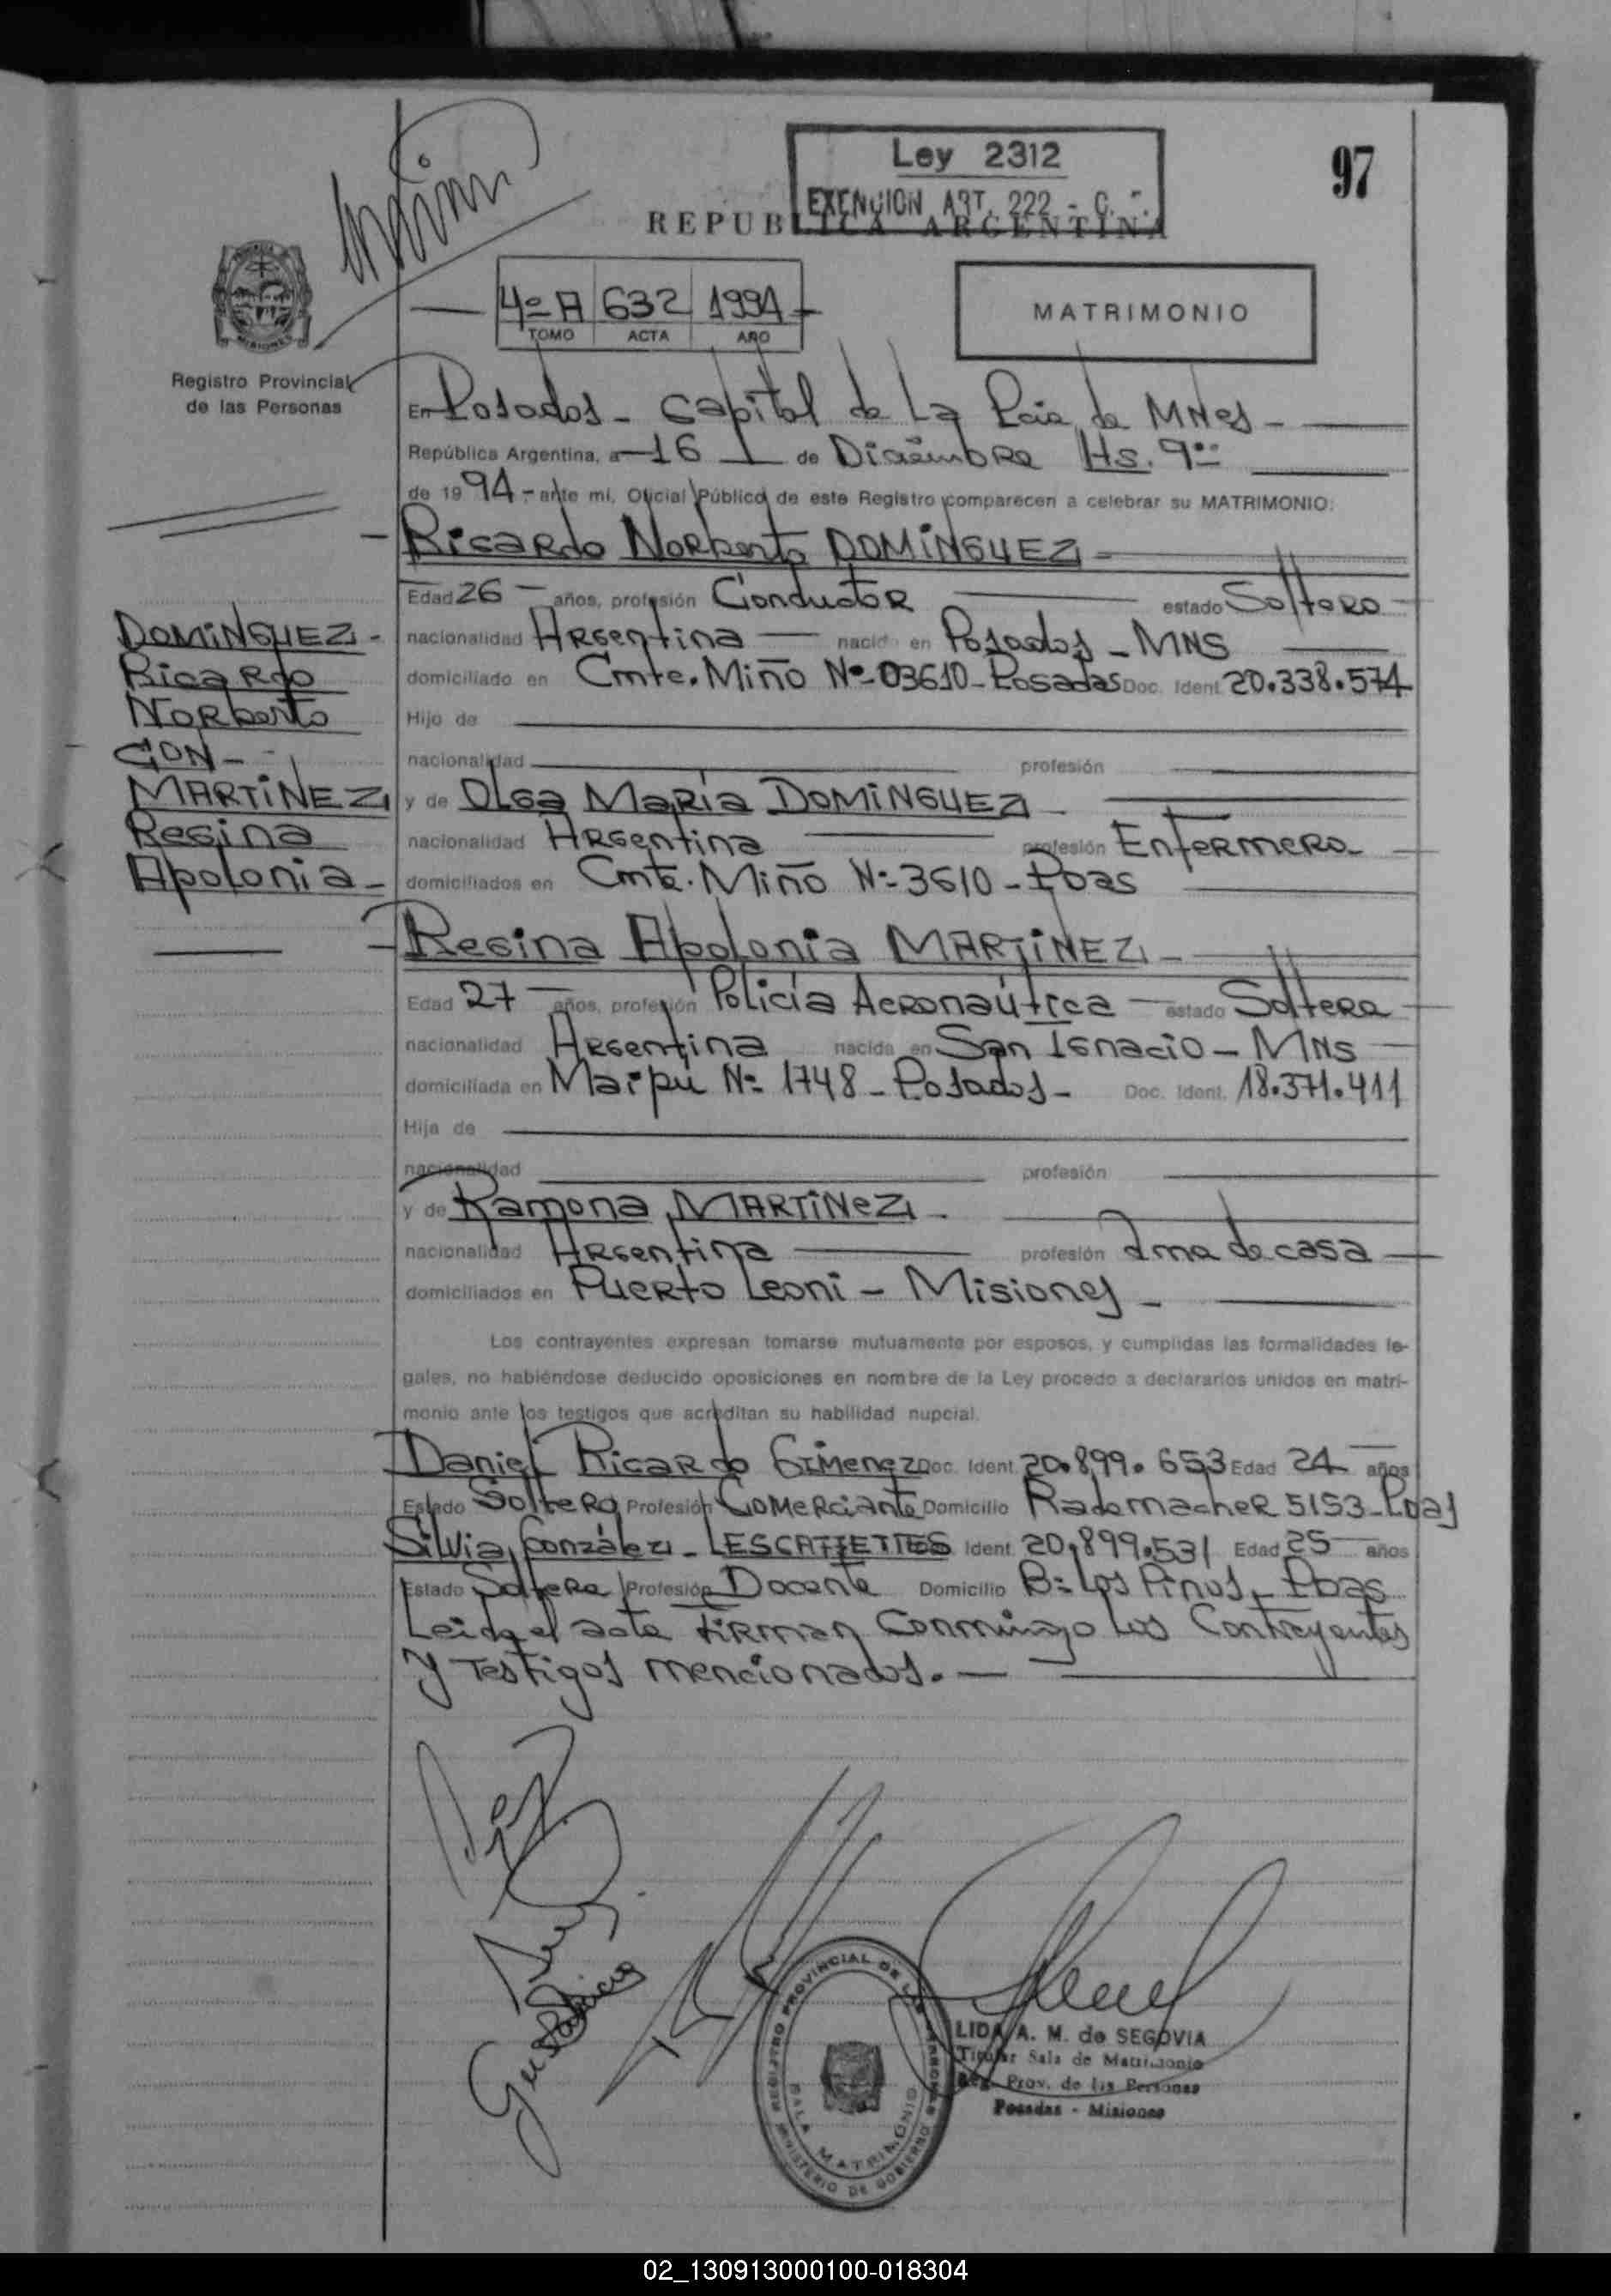 Ley 2312
EXENCION ART. 222 - C.
97
REPUBLICA ARGENTINA
4º A 632 1994
TOMO ACTA AÑO
MATRIMONIO
MISIONES
Registro Provincial
de las Personas
En Posadas - Capital de La Pcia de MNes -
República Argentina, a 16 de Diciembre Hs. 9
de 1994 - ante mi, Oficial Público de este Registro comparecen a celebrar su MATRIMONIO:
Ricardo Norberto DOMINGUEZ -
Edad 26 - años, profesión Conductor estado Soltero
nacionalidad Argentina nacido en Posadas - MNS
domiciliado en Cmte. Miño Nº 03610 - Posadas Doc. Ident. 20.338.574
Hijo de
nacionalidad profesión
y de Olga María DOMINGUEZ
nacionalidad Argentina profesión Enfermera
domiciliados en Cmte. Miño Nº 3610 - Pdas
DOMINGUEZ -
Ricardo
Norberto
CON -
MARTINEZ
Regina
Apolonia -
Regina Apolonia MARTINEZ -
Edad 27 años, profesión Policía Aeronaútica estado Soltera
nacionalidad Argentina nacida en San Ignacio - MNS
domiciliada en Maipú Nº 1748 - Posadas - Doc. Ident. 18.371.411
Hija de
nacionalidad profesión
y de Ramona MARTINEZ -
nacionalidad Argentina profesión Ama de casa
domiciliados en Puerto Leoni - Misiones -
Los contrayentes expresan tomarse mutuamente por esposos, y cumplidas las formalidades le-
gales, no habiéndose deducido oposiciones en nombre de la Ley procedo a declararlos unidos en matri-
monio ante los testigos que acreditan su habilidad nupcial.
Daniel Ricardo Gimenez Doc. Ident. 20.899.653 Edad 24 años
Estado Soltero Profesión Comerciante Domicilio Rademacher 5153 - Pdas
Silvia González - Ident. 20.899.531 Edad 25 años
Estado Soltera Profesión Docente Domicilio Bº Los Pinos - Pdas
Leida el acta firman conmigo los Contrayentes
y Testigos mencionados. -
REGISTRO PROVINCIAL DE LAS PERSONAS
SALA MATRIMONIO
MINISTERIO DE GOBIERNO
LIDA A. M. de SEGOVIA
Titular Sala de Matrimonio
Reg. Prov. de las Personas
Posadas - Misiones
02_130913000100-018304